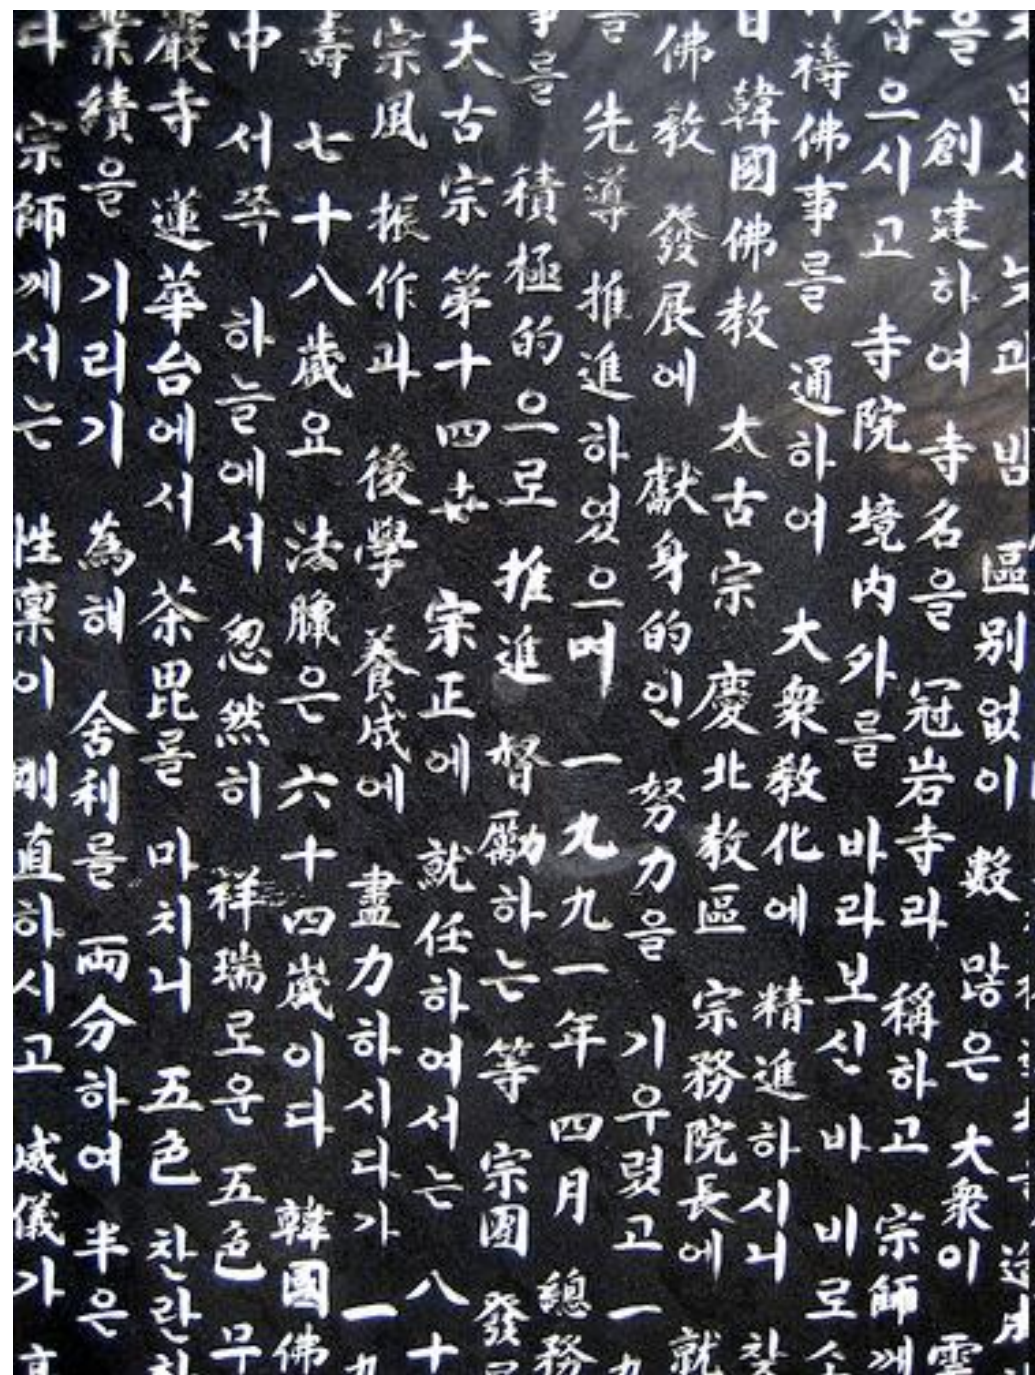 낮과 밤 區別없이 數 많은 大衆이
을 創建하여 寺名을 冠岩寺라 稱하고 宗師께
잡으시고 寺院 境內外를 바라보신 바 비로소
禱佛事를 通하여 大衆敎化에 精進하시니
韓國佛教 太古宗 慶北敎區 宗務院長에 就
佛敎 發展에 獻身的인 努力을 기우렸고 一九
를 先導 推進하였으며 一九九一年 四月 總務
事를 積極的으로 推進 督勵하는 等 宗團 發展
大古宗 第十四世 宗正에 就任하여서는 八十
宗風 振作과 後學 養成에 盡力하시다가 一九
壽 七十八歲요 法臘은 六十四歲이다 韓國佛
中 서쪽 하늘에서 忽然히 祥瑞로운 五色 무
嚴寺 蓮華台에서 茶毘를 마치니 五色 찬란한
業績을 기리기 爲해 舍利를 両分하여 半은
다 宗師께서는 性稟이 剛直하시고 威儀가 高